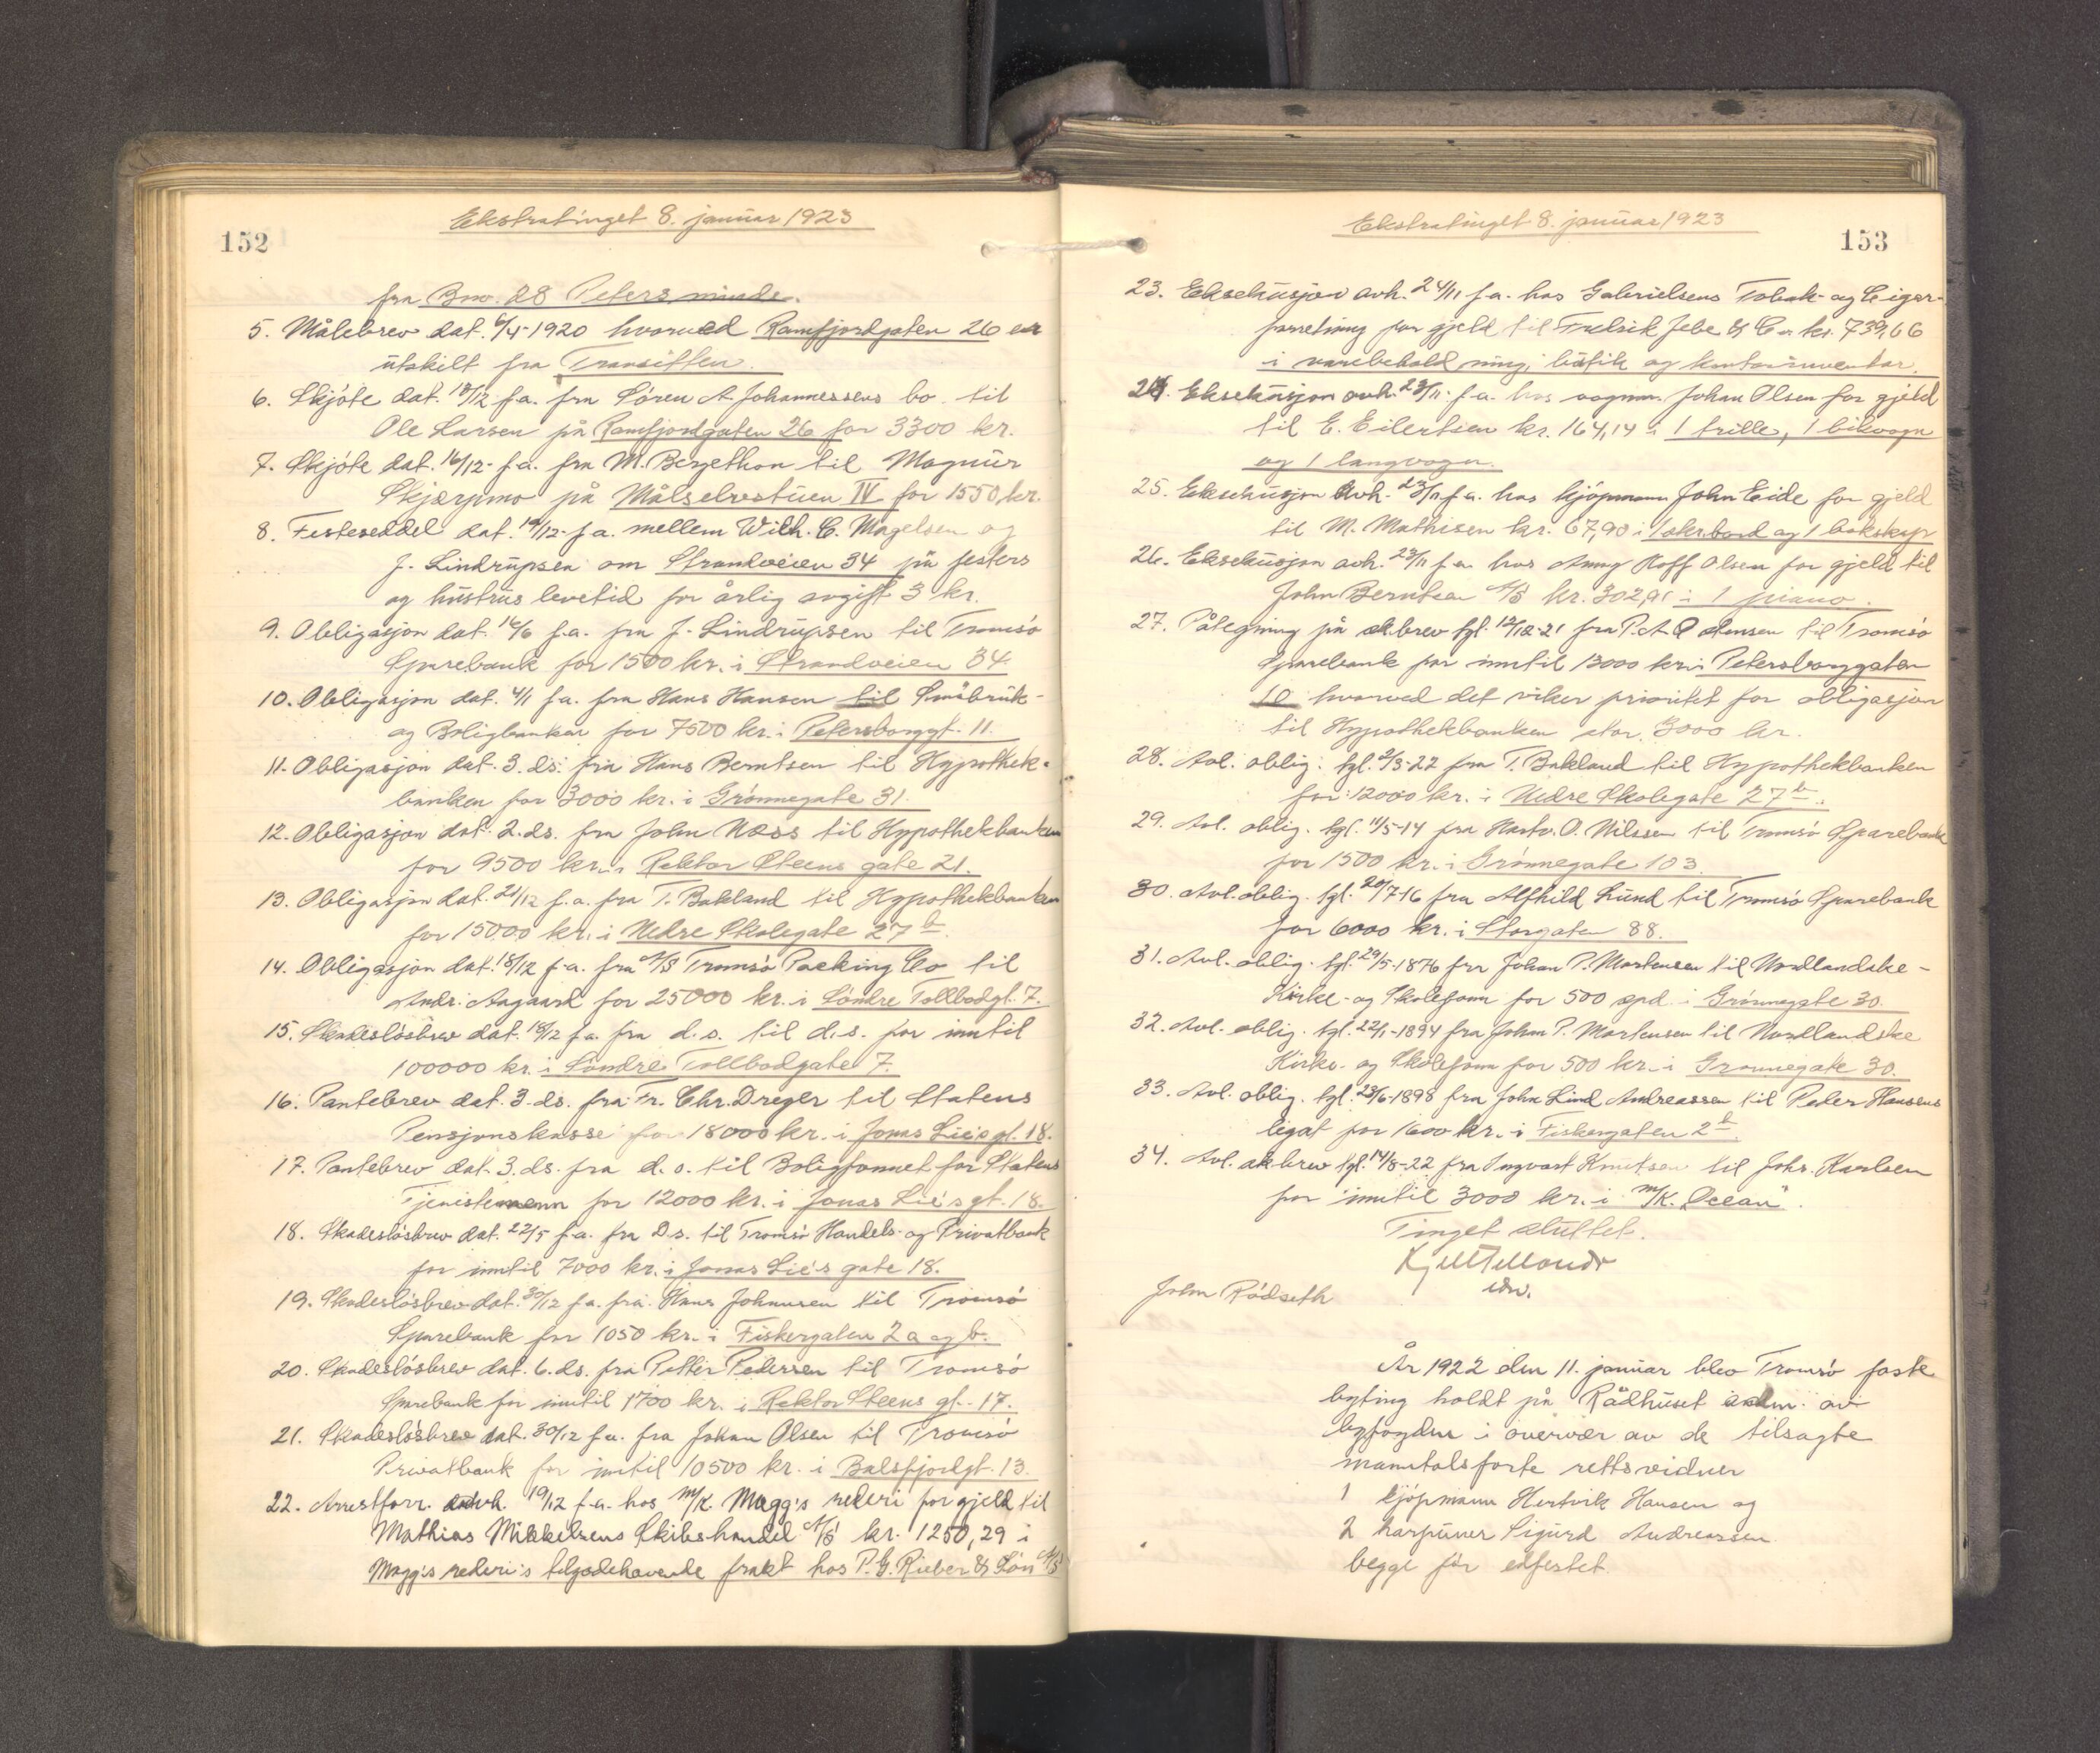 152
Ekstratinget 8. januar 1923
fra Bno. 28 Petersminde.
5. Målebrev dat. 6/4-1920 hvorved Ramfjordgaten 26 er
utskilt fra Transitten.
6. Skjöte dat. 18/12 f.a. fra Sören A. Johannessens bo til
Ole Larsen på Ramfjordgaten 26 for 3300 kr.
7. Skjöte dat. 16/12- f.a. fra M. Bergethon til Magnus
Skjærpmo på Målselvstuen IV for 1550 kr.
8. Festeseddel dat. 19/12- f.a. mellem Wilh. C. Magelsen og
J. Lindrupsen om Strandveien 34 på festers
og hustrus levetid for årlig avgift 3 kr.
9. Obligasjon dat. 16/6 f.a. fra J. Lindrupsen til Tromsö
Sparebank for 1500 kr. i Strandveien 34.
10. Obligasjon dat. 4/1 f.a. fra Hans Hansen til Småbruk-
og Boligbanken for 7500 kr. i Petersborggt. 11.
11. Obligasjon dat. 3. ds. fra Hans Berntsen til Hypothek-
banken for 3000 kr. i Grönnegate 31.
12. Obligasjon dat. 2. ds. fra John Næss til Hypothekbanken
for 9500 kr. i Rektor Steens gate 21.
13. Obligasjon dat. 21/12 f.a. fra T. Bakland til Hypothekbanken
for 15000 kr. i Nedre Skolegate 27 b.
14. Obligasjon dat. 18/12 f.a. fra A/S Tromsö Packing Co til
Andr. Aagaard for 25000 kr. i Söndre Tollbodgt. 7.
15. Skadeslösbrev dat. 18/12 f.a. fra d.s. til d.s. for inntil
100000 kr. i Söndre Tollbodgate 7.
16. Pantebrev dat. 3. ds. fra Fr. Chr. Dreyer til Statens
Pensjonskasse for 18000 kr. i Jonas Lie's gt. 18.
17. Pantebrev dat. 3. ds. fra d.s. til Boligfonnet for Statens
Tjenestemenn for 12000 kr. i Jonas Lie's gt. 18.
18. Skadeslösbrev dat. 22/5 f.a. fra D.s. til Tromsö Handels- og Privatbank
for inntil 7000 kr. i Jonas Lie's gate 18.
19. Skadeslösbrev dat. 30/12 f.a. fra Hans Johnnsen til Tromsö
Sparebank for 1050 kr. i Fiskergaten 2 a og b.
20. Skadeslösbrev dat. 6. ds. fra Petter Pedersen til Tromsö
Sparebank for inntil 1700 kr. i Rektor Steens gt. 17.
21. Skadeslösbrev dat. 30/12 f.a. fra Johan Olsen til Tromsö
Privatbank for inntil 10500 kr. i Balsfjordgt. 13.
22. Arrestforr. avh. 19/12 f.a. hos M/K. Magg's rederi for gjeld til
Mathias Mikkelsens Skibshandel A/S kr. 1250,29 i
Magg's rederi's tilgodehavende frakt hos P. G. Rieber & Sön A/S
Ekstratinget 8. januar 1923
153
23. Eksekusjon avh. 24/11 f.a. hos Gabrielsens Tobak- og Cigar-
forretning for gjeld til Fredrik Jebe & Co kr. 739,66
i varebeholdning, butik og kontorinventar.
24. Eksekusjon avh. 23/11- f.a. hos vognm. Johan Olsen for gjeld
til E. Eilertsen kr. 164,14 i 1 trille, 1 bikvogn
og 1 langvogn.
25. Eksekusjon avh. 23/11 f.a. hos kjöpmann John Eide for gjeld
til M. Mathisen kr. 67,90 i 1 skrbord og 1 bokskap
26. Eksekusjon avh. 23/11 f.a. hos Anny Hoff Olsen for gjeld til
John Berntsen A/S kr. 302,91 i 1 piano.
27. Påtegning på sk.brev tgl. 12/12-21 fra P. A. Östensen til Tromsö
Sparebank for inntil 13000 kr. i Petersborggaten
10 hvorved det viker prioritet for obligasjon
til Hypothekbanken stor 3000 kr.
28. Avl. oblig. tgl. 2/3-22 fra T. Bakland til Hypothekbanken
for 12000 kr. i Nedre Skolegate 27 b.
29. Avl. oblig. tgl. 11/5-14 fra Hartv. O. Nilssen til Tromsö Sparebank
for 1500 kr. i Grönnegate 103.
30. Avl. oblig. tgl. 20/7-16 fra Alfhild Lund til Tromsö Sparebank
for 6000 kr. i Storgaten 88.
31. Avl. oblig. tgl. 29/5-1876 fra Johan P. Mortensen til Nordlandske-
Kirke- og Skolefonn for 500 spd. i Grönnegate 30.
32. Avl. oblig. tgl. 22/1-1894 fra Johan P. Mortensen til Nordlandske
Kirke- og Skolefonn for 500 kr. i Grönnegate 30.
33. Avl. oblig. tgl. 23/6-1898 fra John Lind Andreassen til Peder Hansens
legat for 1600 kr. i Fiskergaten 2 b.
34. Avl. sk.brev tgl. 14/8-22 fra Ingvart Knutsen til Johs. Karlsen
for inntil 3000 kr. i M/K. "Ocean".
Tinget sluttet.
John Rödseth
År 1922 den 11. januar blev Tromsö faste
byting holdt på Rådhuset adm. av
byfogden i overvær av de tilsagte
manntalsförte rettsvidner
1 kjöpmann Hertvik Hansen og
2 harpuner Sigurd Andreassen
begge för edfestet.